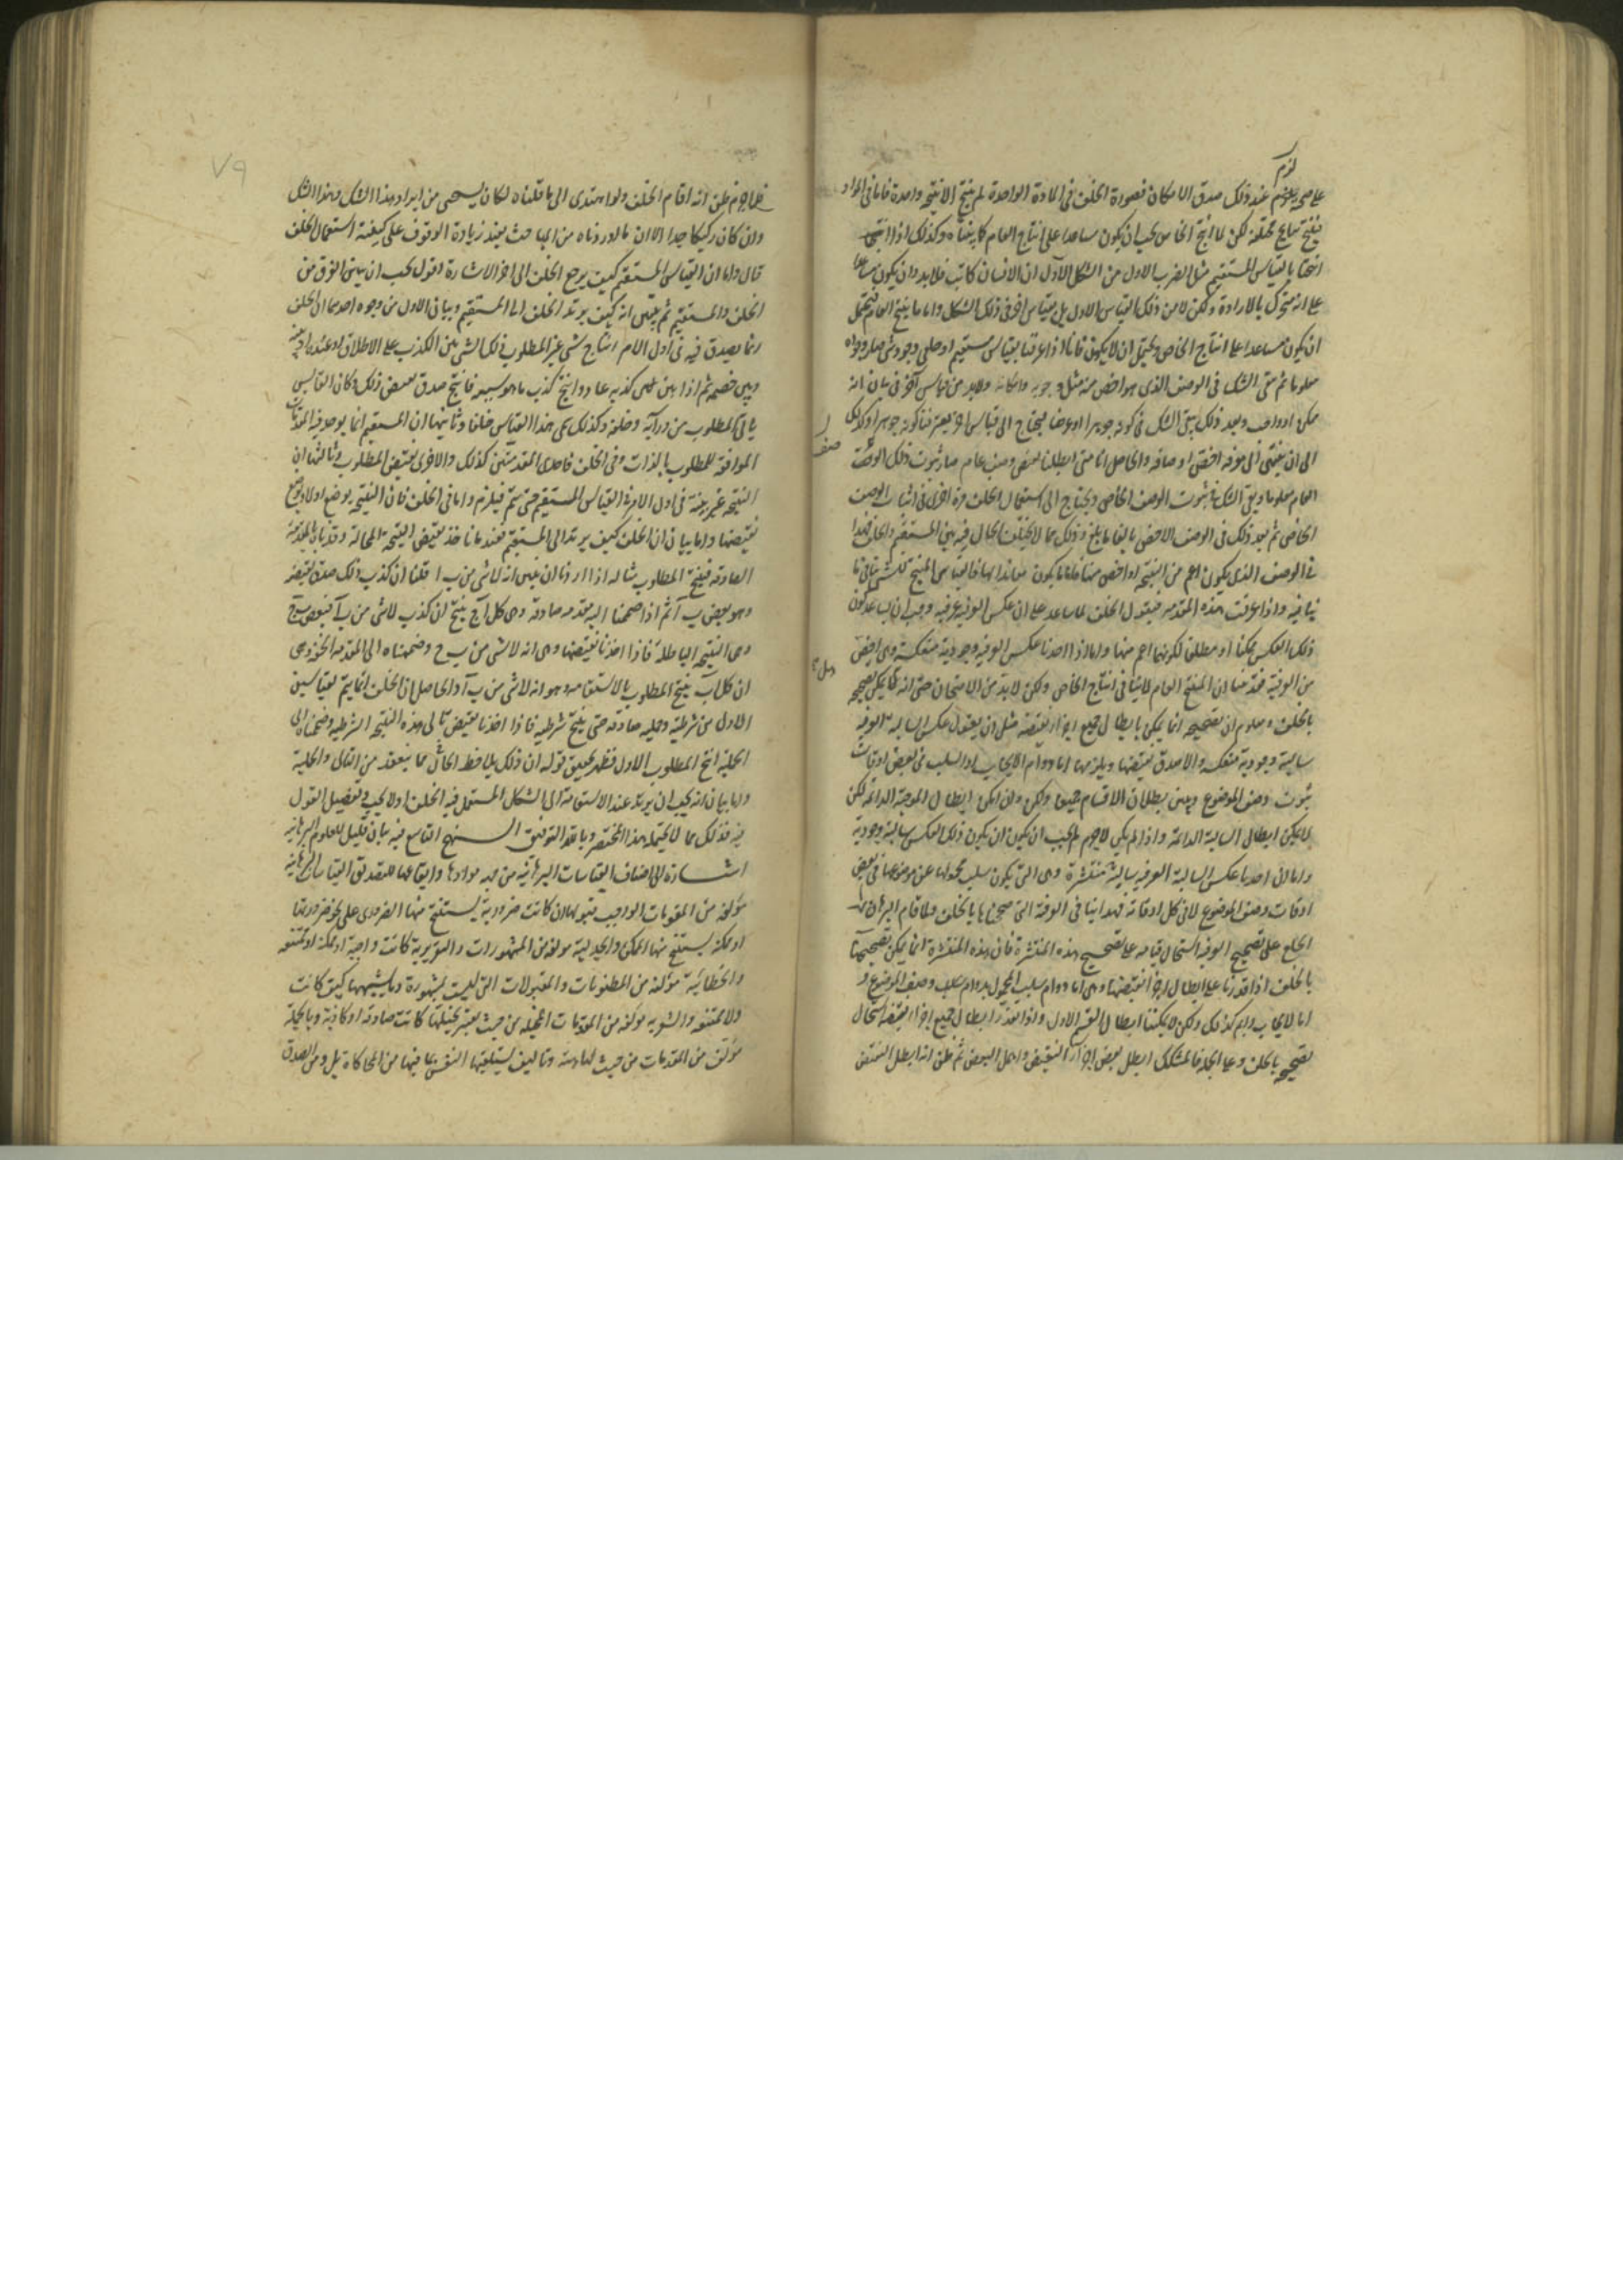 لزم
عند ذلك صدق الامكان فصورة الخلف فى المادة الواحدة لم ينتج الا نتيجة واحدة فاما فى المواد
فينتج نتايج مختلفة لكن ما انتج الخاص يجب ان يكون مساعدا على انتاج العام كما بيناه وكذلك اذا
انتجنا بالقياس المستقيم مثل الضرب الاول من الشكل الاول ان الانسان كاتب فلا بد وان يكون
على انه متحرك بالارادة ولكن لا من ذلك القياس الاول بل بقياس اخر فى ذلك الشكل واما ما ينتج العام فيحتمل
ان يكون مساعدا على انتاج الخاص ويحتمل ان لا يكون فانا اذا عرفنا بقياس مستقيم او خلفى وجود شى
معلوما ثم بقى الشك فى الوصف الذى هو اخص منه مثل وجوبه وامكانه ولا بد من قياس آخر فى بيان انه
ممكن او واجب وبعد ذلك يبقى الشك فى كونه جوهرا او عرضا فيحتاج الى قياس اخر
الى ان ينتهى الى معرفة اخص اوصافه والحاصل انا متى ابطلنا نقيض وصف عام صار ثبوت ذلك الوصف
العام معلوما ويبقى الشك فى ثبوت الوصف الخاص ويحتاج الى استعمال الخلف مرة اخرى فى اثبات الوصف
الخاص ثم بعد ذلك فى الوصف الاخص بالغا ما بلغ وذلك مما لا يختلف الحال فيه بين المستقيم والخلف فهذا
فى الوصف الذى يكون اعم من النتيجة او اخص منها فاما ما يكون معاندا لها فالقياس المنتج للشى
ينافيه واذا عرفت هذه المقدمة فنقول الخلف لما ساعد على ان عكس العرفية عرفية وجب ان يساعد على كون
ذلك العكس ممكنا او مطلقا لكونهما اعم منها واما اذا اخذنا عكس العرفية وجودية منعكسة وهى اخص
من العرفية فقد بينا ان المنتج العام لا ينافى انتاج الخاص ولكن لا بد من الامتحان حتى انه هل يمكن تصحيحه
بالخلف ومعلوم ان تصحيحه انما يمكن بابطال جميع اجزاء نقيضه مثل ان يقول عكس السالبة العرفية
سالبة وجودية منعكسة والا صدق نقيضها ويلزمها اما دوام الايجاب او السلب فى بعض اوقات
ثبوت وصف الموضوع وبين بطلان الاقسام جميعا ولكن وان امكن ابطال الموجبة الدائمة لكن
لا يمكن ابطال السالبة الدائمة واذا لم يمكن لا جرم لم يجب ان يكون ذلك العكس سالبة وجودية
واما ان اخذنا عكس السالبة العرفية سالبة منتشرة وهى التى يكون سلب محمولها عن موضوعها فى بعض
اوقات وصف الموضوع لا فى كل اوقاته فهذا ينافى العرفية التى صححناها بالخلف ولما قام البرهان
على تصحيح العرفية استحال قيامه على تصحيح هذه المنتشرة فان هذه المنتشرة انما يمكن تصحيحها
بالخلف اذا قدرنا على ابطال اجزاء نقيضها وهى اما دوام سلب المحمول بدوام سلب وصف الموضوع
اما الايجاب دايم كذلك ولكن لا يمكننا ابطال القسم الاول واذا تعذر ابطال جميع اجزاء نقيضه استحال
تصحيحه بالخلف وعلى الجملة فالمشكك ابطل بعض اجزاء النقيض واهمل البعض ثم ظن انه ابطل النقيض
ظن انه اقام الخلف ولو اهتدى الى ما قلناه لكان يستحيى من ايراد هذا الشك وهذا الشك
وان كان ركيكا جدا الا ان ما اوردناه من المباحث يفيد زيادة الوقوف على كيفية استعمال الخلف
قال واما ان القياس المستقيم كيف يرجع الخلف الى اخر الاشارة اقول يجب ان نبين الفرق بين
الخلف والمستقيم ثم نبين انه كيف يرتد الخلف الى المستقيم وبيان الاول من وجوه احدها ان الخلف
انما يصدق فيه فى اول الامر انتاج شى غير المطلوب
ثم اذا بين كذبه عاد وانتج كذب ما هو سببه فانتج صدق نقيض ذلك وكان القايس
ياتى المطلوب من ورائه وخلفه ولذلك سمى هذا القياس خلفا وثانيها ان المستقيم انما يوجد فيه المقدمات
الموافقة للمطلوب بالذات وفى الخلف فاحدى المقدمتين كذلك والاخرى نقيض المطلوب وثالثها ان
النتيجة غير بينة فى اول الامر فى القياس المستقيم حتى يتم فيلزم واما فى الخلف فان النتيجة يوضع اولا
نقيضها واما بيان ان الخلف كيف يرتد الى المستقيم فعندما ناخذ نقيض النتيجة المحالة
الصادقة فينتج المطلوب مثاله اذا اردنا ان نبين انه لا شى من ب ا قلنا ان كذب ذلك صدق نقيضه
وهو بعض ب آ ثم اذا ضممنا اليه مقدمة صادقة وهى كل آ ج ينتج ان كذب لا شى من ب آ فبعض ب ج
وهى النتيجة الباطلة فاذا اخذنا نقيضها وهى انه لا شى من ب ج وضممناه الى المقدمة الاخرى وهى
ان كل آ ج ينتج المطلوب بالاستقامة وهو انه لا شى من ب آ والحاصل ان الخلف انما يتم بقياسين
الاول من شرطية وحملية صادقة حتى ينتج شرطية فاذا اخذنا نقيض تالى هذه النتيجة الشرطية وضممناه الى
الحملية انتج المطلوب الاول فظهر تحقيق قوله ان ذلك يلاحظ الحال مما ينعقد من التالى والحملية
واما بيان انه يجب ان يرتد عند الاستقامة الى الشكل المستعمل فيه الخلف او لا يجب وتفصيل القول
فيه فذلك مما لا يحتمله هذا المختصر وبالله التوفيق النهج التاسع فيه بيان قليل للعلوم البرهانية
اشارة الى اصناف القياسات البرهانية من جهة موادها وايقاعها للتصديق القياسات البرهانية
مؤلفة من المقدمات الواجب قبولها ان كانت ضرورية يستنتج منها الضرورى على نحو ضرورتها
او ممكنة يستنتج منها الممكن والجدلية مولفة من المشهورات والتقريرية كانت واجبة او ممكنة او ممتنعة
والخطابية مؤلفة من المظنونات والمقبولات التى ليست بمشهورة وما يشبهها كيف كانت
ولا ممتنعة والشعرية مولفة من المقدمات المخيلة من حيث يعتبر تخييلها كانت صادقة او كاذبة وبالجملة
مؤلف من المقدمات من حيث لها هيئة وتاليف يستقبلها النفس بما فيها من المحاكاة بل ومن الصدق
٧٩